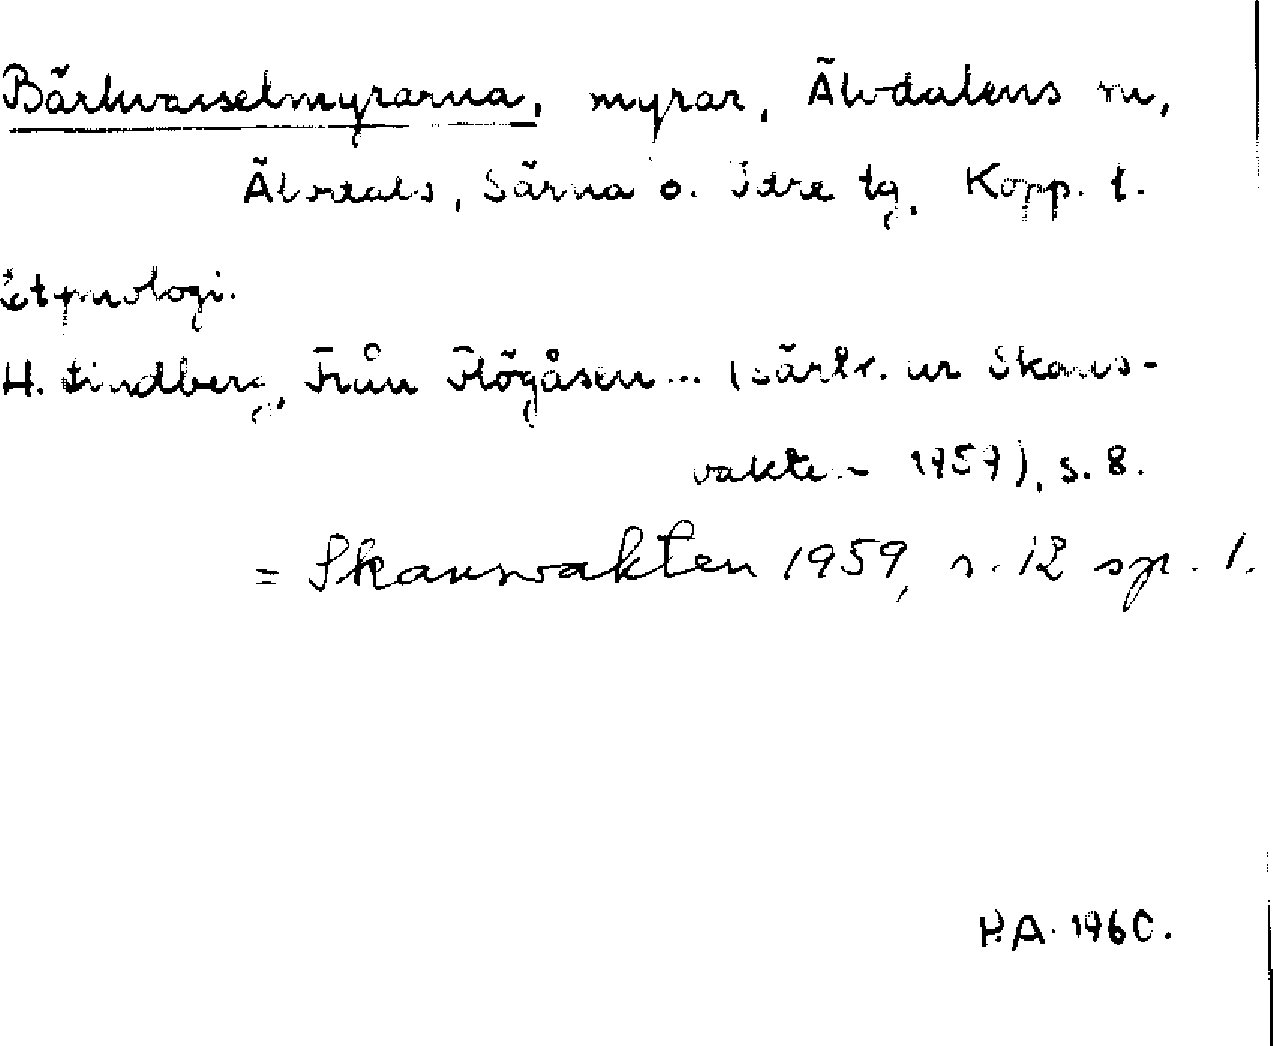 Bärkvasselmyrarna, myrar, Älvdalens sn,
Älvdals, Särna o. Idre tg, Kopp. l.
Etymologi.
H. Lindberg, Från Högåsen... (särtr. ur Skans-
vakten 1959), s. 8.
= Skansvakten 1959, s. 12 sp. 1.
P.A. 1960.